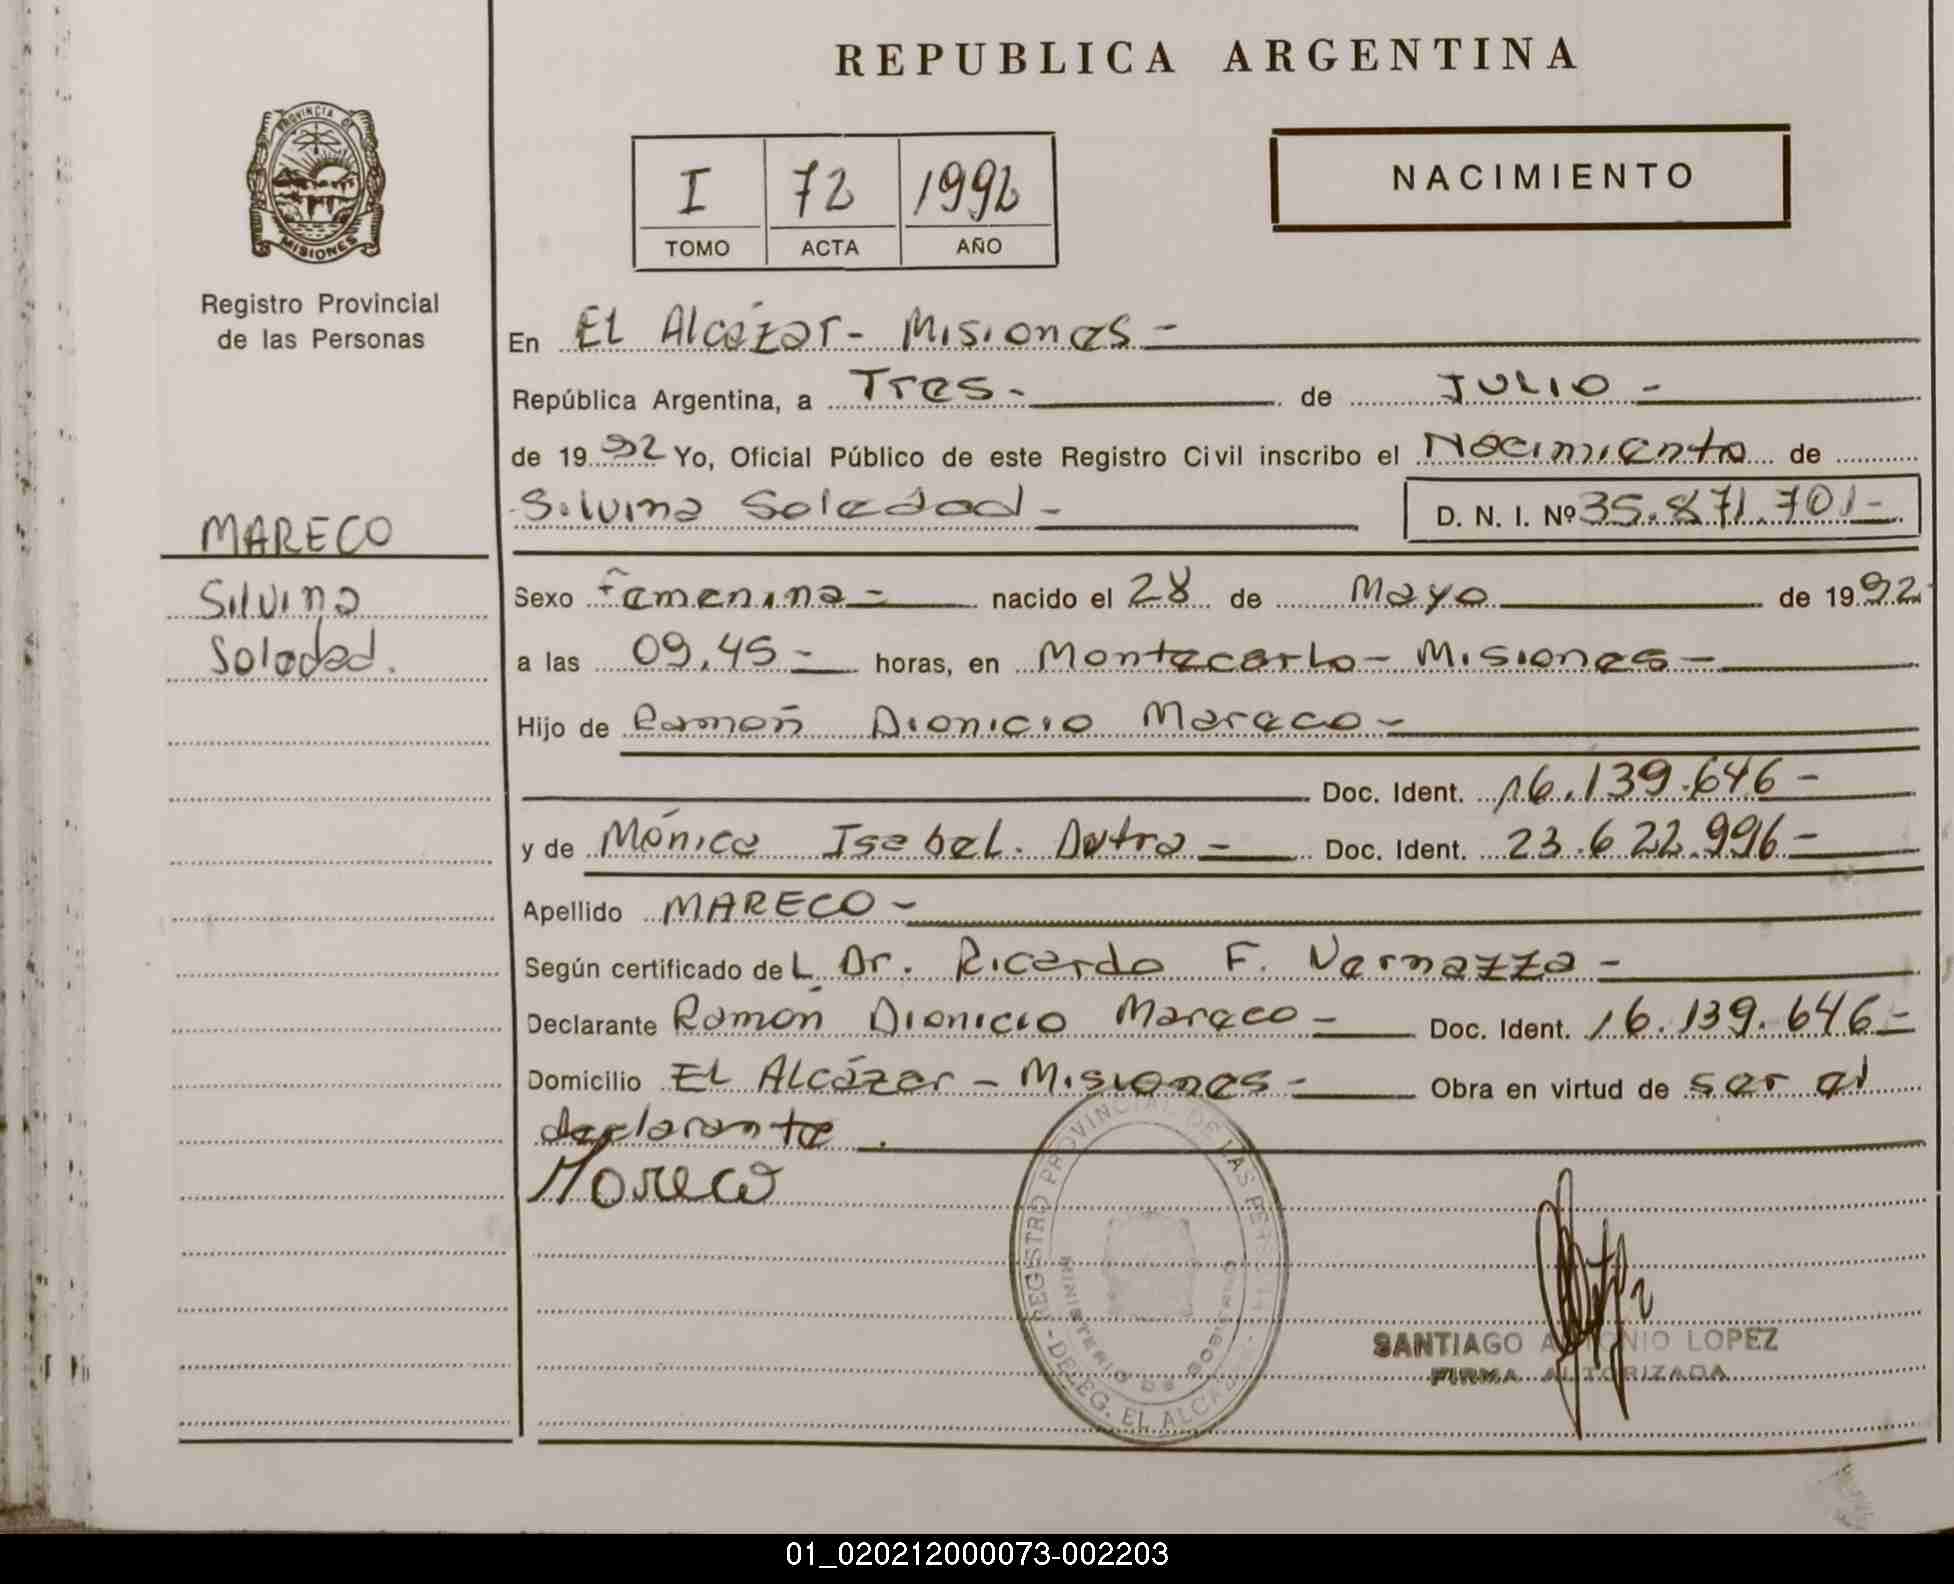 REPUBLICA ARGENTINA
PROVINCIA DE
MISIONES
Registro Provincial
de las Personas
I 72 1992
TOMO ACTA AÑO
NACIMIENTO
En El Alcázar - Misiones -
República Argentina, a Tres - de Julio -
de 1992 Yo, Oficial Público de este Registro Civil inscribo el Nacimiento de
Silvina Soledad - D. N. I. Nº 35.871.701-
MARECO
Silvina
Soledad.
Sexo Femenina - nacido el 28 de Mayo de 1992
a las 09,45 - horas, en Montecarlo - Misiones -
Hijo de Ramón Dionicio Mareco -
Doc. Ident. 16.139.646 -
y de Mónica Isabel. Dutra - Doc. Ident. 23.622.996 -
Apellido MARECO -
Según certificado del Dr. Ricardo F. Vernazza -
Declarante Ramón Dionicio Mareco - Doc. Ident. 16.139.646 -
Domicilio El Alcázar - Misiones - Obra en virtud de ser el
declarante.
Mareco
REGISTRO PROVINCIAL DE LAS PERSONAS
MINISTERIO DE GOBIERNO
- DELEG. EL ALCAZAR -
SANTIAGO ANTONIO LOPEZ
FIRMA AUTORIZADA
01_020212000073-002203